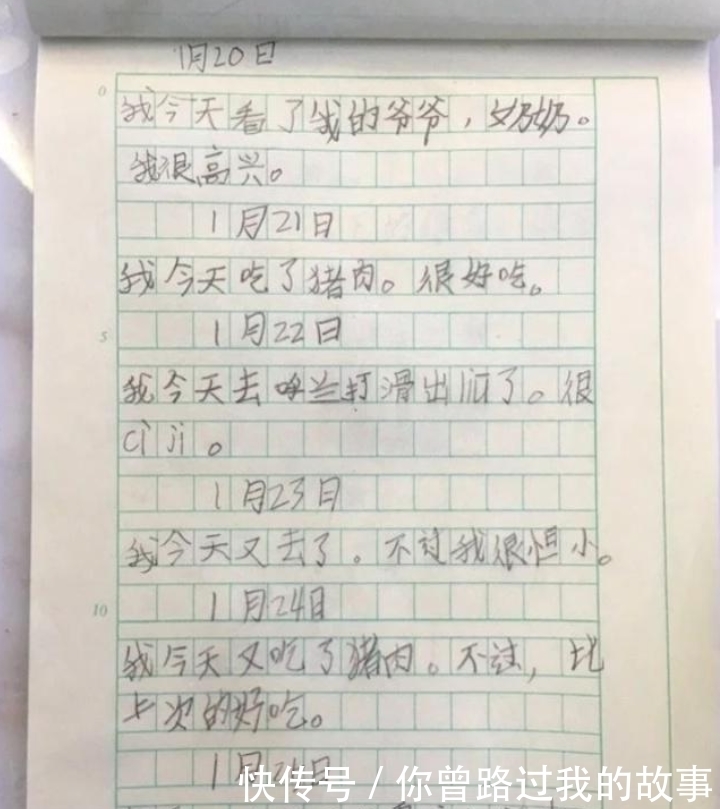 1月20日
0
我今天看了我的爷爷，奶奶。
我很高兴。
1月21日
我今天吃了猪肉。很好吃。
5
1月22日
我今天去呼兰打滑出liū了。很
cì jī。
1月23日
我今天又去了。不过我很恒小。
10
1月24日
我今天又吃了猪肉。不过，比
上次的好吃。
1月2日
快传号 / 你曾路过我的故事